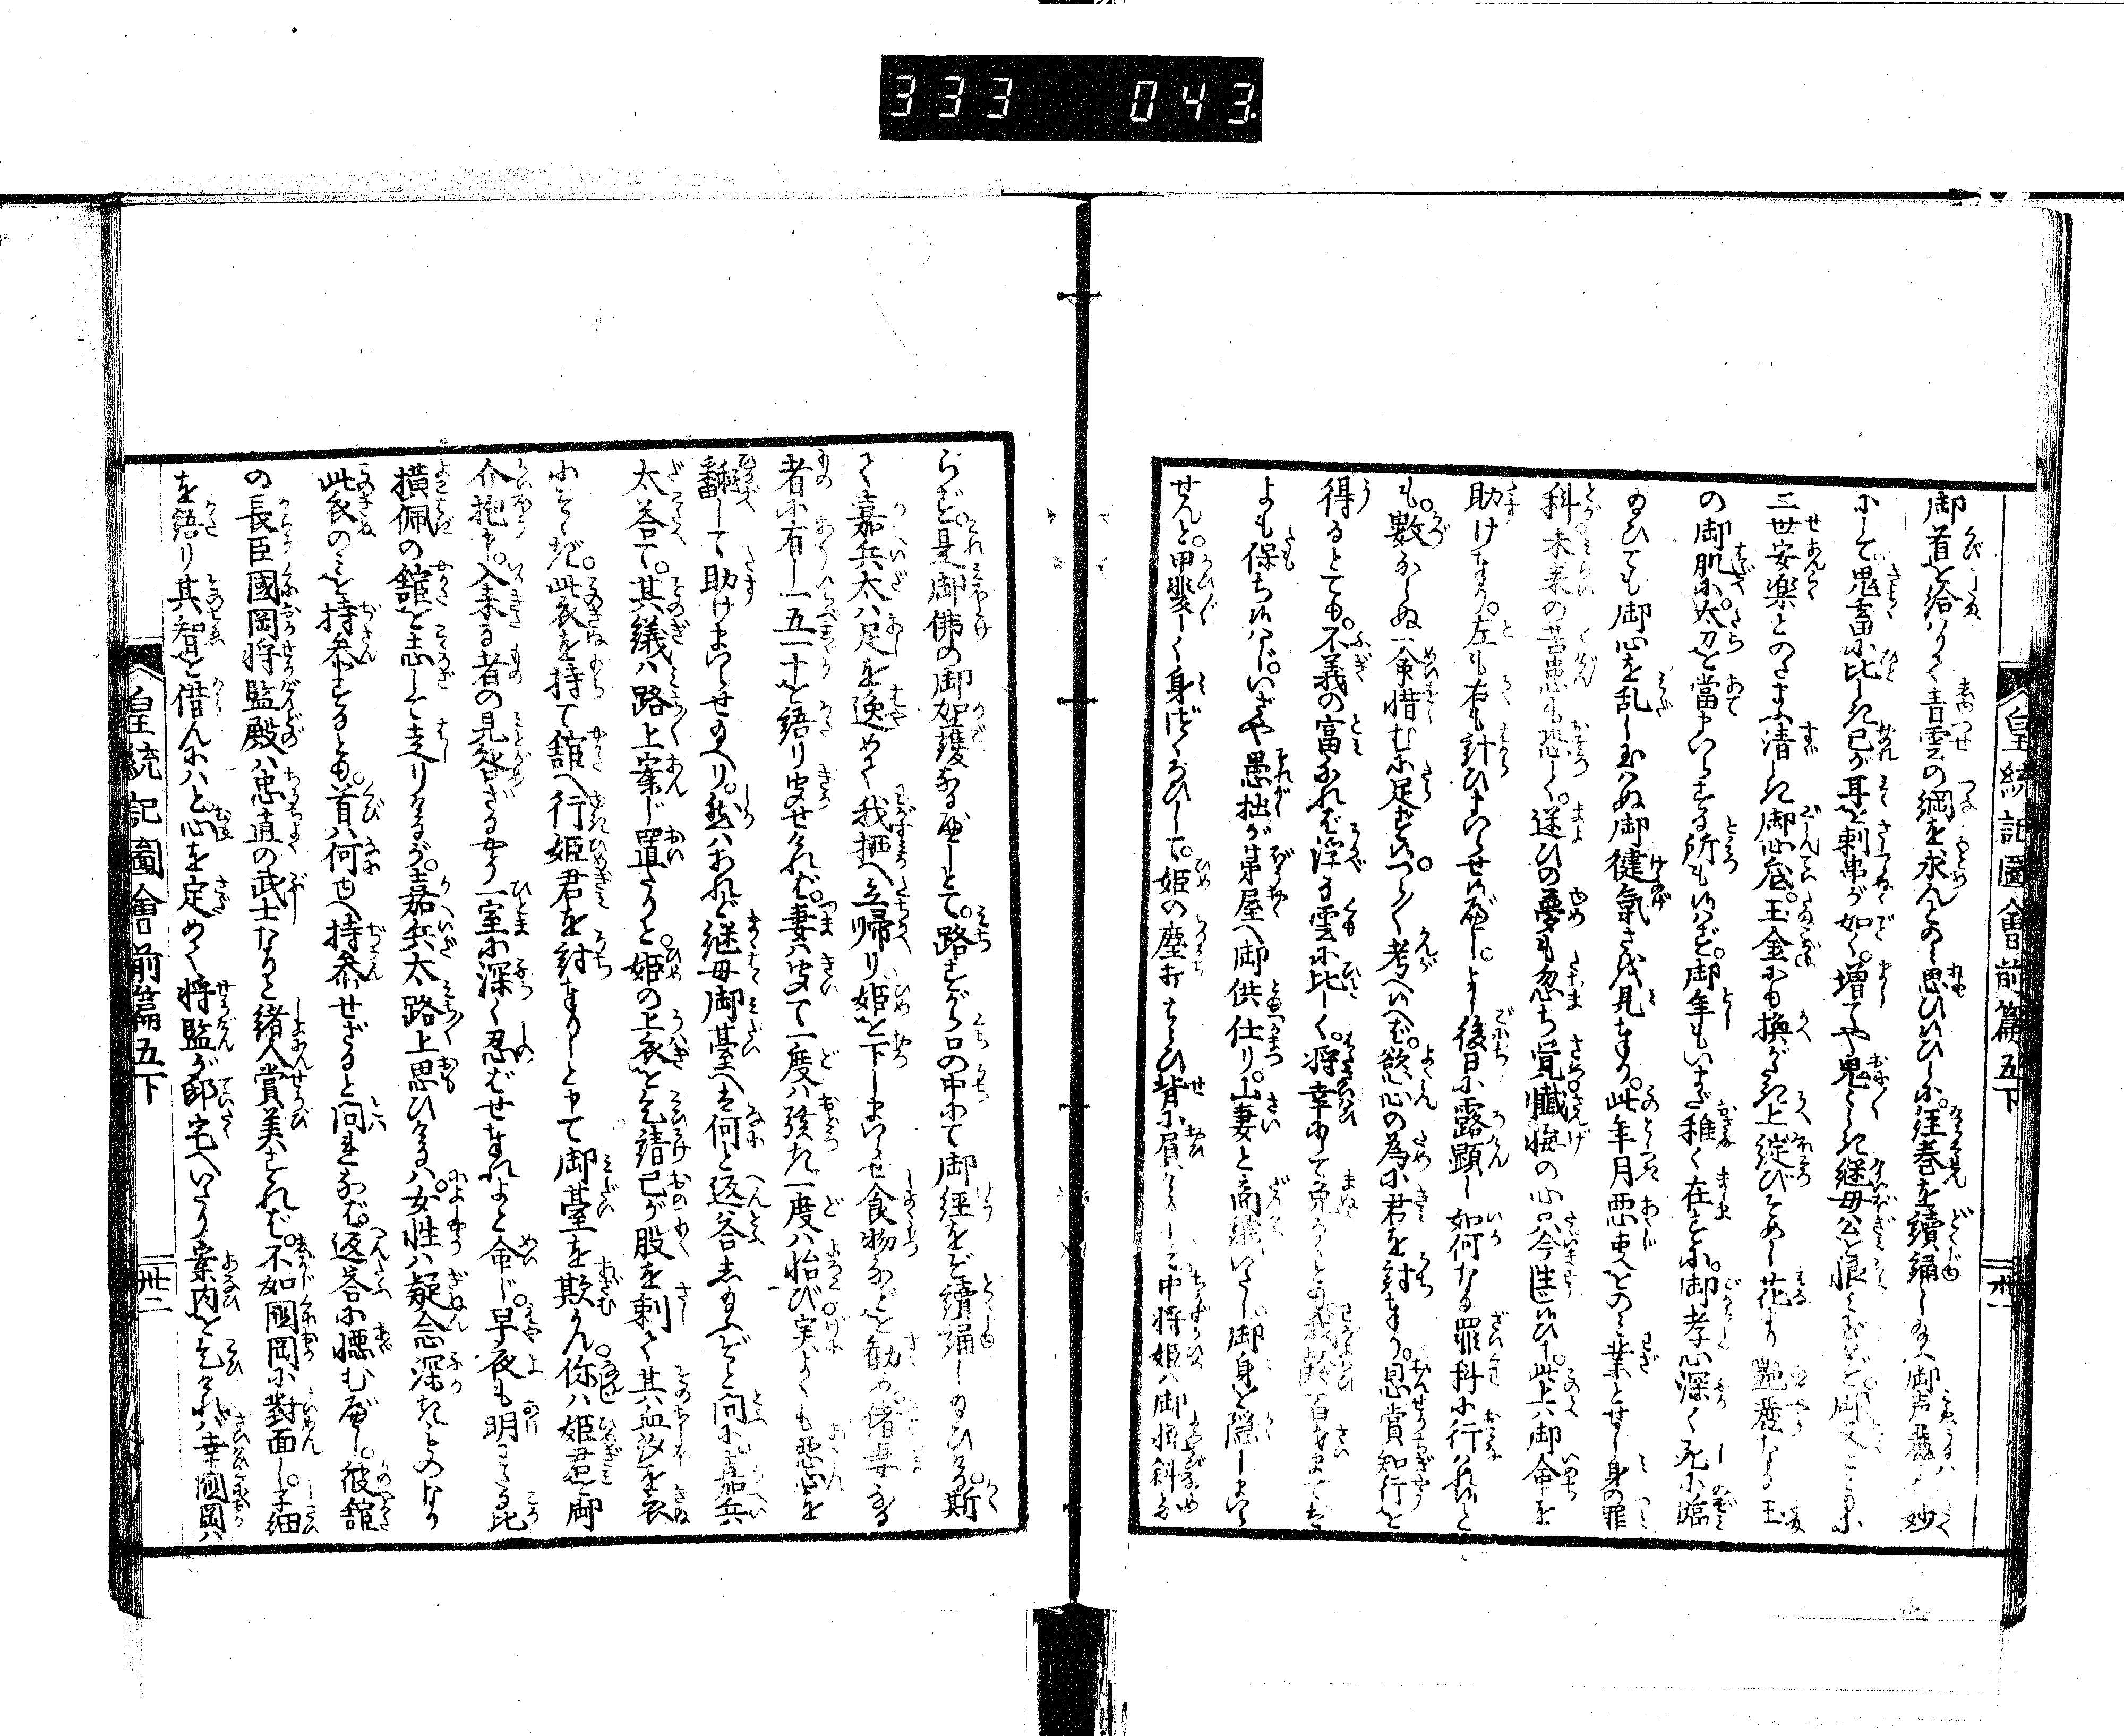 333 043
皇統記圖會前篇五下
卅一
御首を給りて青雲の綱を求んとのミ思ひ候ひしに経巻を續誦し給ふ御声
にして鬼畜に比しき己が耳を刺串が如く増てや鬼〻しき継母公を恨ミ玉ハず御父とともに
三世安楽とのたまふ清しき御心底玉金にも換がたき上綻びそめし花より艶麗なる玉
の御肌に太刀を當申いらする所も候ハず御年もいまだ稚く在すに御孝心深く死に臨
給ひても御心を乱し玉ハぬ御健氣さを見奉り此年月悪事をのミ業とせし身の罪
科未来の苦患も恐しく迷ひの夢も忽ち覚懺悔の心只今生候ひて此上ハ御命を
助け奉り左も右も計ひまいらせ候べしよし後日に露顕し如何なる罪科に行ハれ候と
も數ならぬ一命惜むに足ず候つら〱考へ候へバ慾心の為に君を討奉り恩賞知行を
得るとても不義の富なれバ浮る雲に比しく将幸にて免るゝとも我齢百才まで
よも保ち候ハじいざや愚拙が茅屋へ御供仕り山妻と商議いたし御身を隠しまいら
せんと甲斐〱しく身づくろひして姫の塵打はらひ背に負まいらせ中将姫ハ御悦斜な
らず是御佛の御加護なるべしとて路すがら口の中にて御經をぞ續誦し給ひける斯
て嘉兵太ハ足を逸めて我栖へ立帰り姫を下しまいらせ食物などを勧め偖妻なる
者に有し一五一十を語り聞せけれバ妻ハ聞て一度ハ駭き一度ハ怡び実よくも悪心を
翻して助けまいらせ給へり然ハあれど継母御臺へハ何と返答し給ふぞと問に嘉兵
太答て其議ハ路上案じ置たりと姫の上衣を乞請己が股を刺て其血汐を衣
にそゝぎ此衣を持て舘へ行姫君を討奉りしとて御臺を欺かん你ハ姫君を御
介抱申入来る者の見咎ざるやう一室に深く忍バせ奉れよと命じ早夜も明わたる比
横佩の舘を志して走りけるが嘉兵太路上思ひけるハ女性ハ疑念深きものなり
此衣のミを持参するとも首ハ何ゆへ持参せざると問れなバ返答に擄むべし彼舘
の長臣國岡将監殿ハ忠直の武士なりと諸人賞美すれバ不如國岡に對面し子細
を語り其智を借んにハと心を定めて将監が邸宅へいたり案内を乞けれバ幸國岡ハ
皇統記圖會前篇五下
卅二